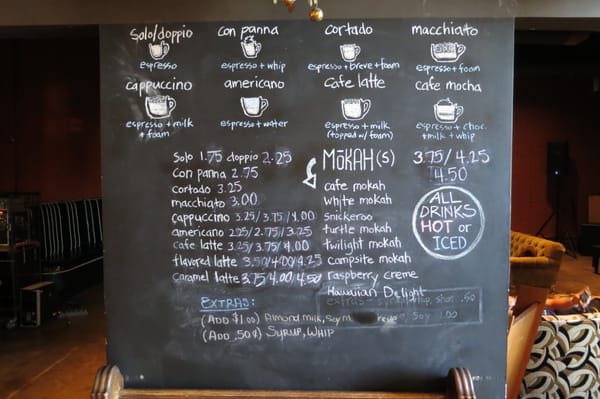 Solo/doppio con panna cortado macchiato
espresso espresso + whip espresso + breve + foam espresso + foam
cappuccino americano Cafe latte cafe mocha
espresso + milk + foam espresso + water espresso + milk (topped w/ foam) espresso + choc. + milk + whip
Solo 1.75 doppio 2.25
con panna 2.75
cortado 3.25
macchiato 3.00
cappuccino 3.25/3.75/4.00
americano 2.25/2.75/3.25
cafe latte 3.25/3.75/4.00
flavored latte 3.50/4.00/4.25
caramel latte 3.75/4.00/4.50
MŌKAH(S) 3.75/4.25
4.50
cafe mokah
white mokah
Snickeroo
turtle mokah
twilight mokah
campsite mokah
raspberry creme
Hawaiian Delight
ALL
DRINKS
HOT or
ICED
EXTRAS:
(ADD $1.00) Almond milk, Soy
(ADD .50¢) SYRUP, WHIP
extras - whip, shot .50
Soy 1.00